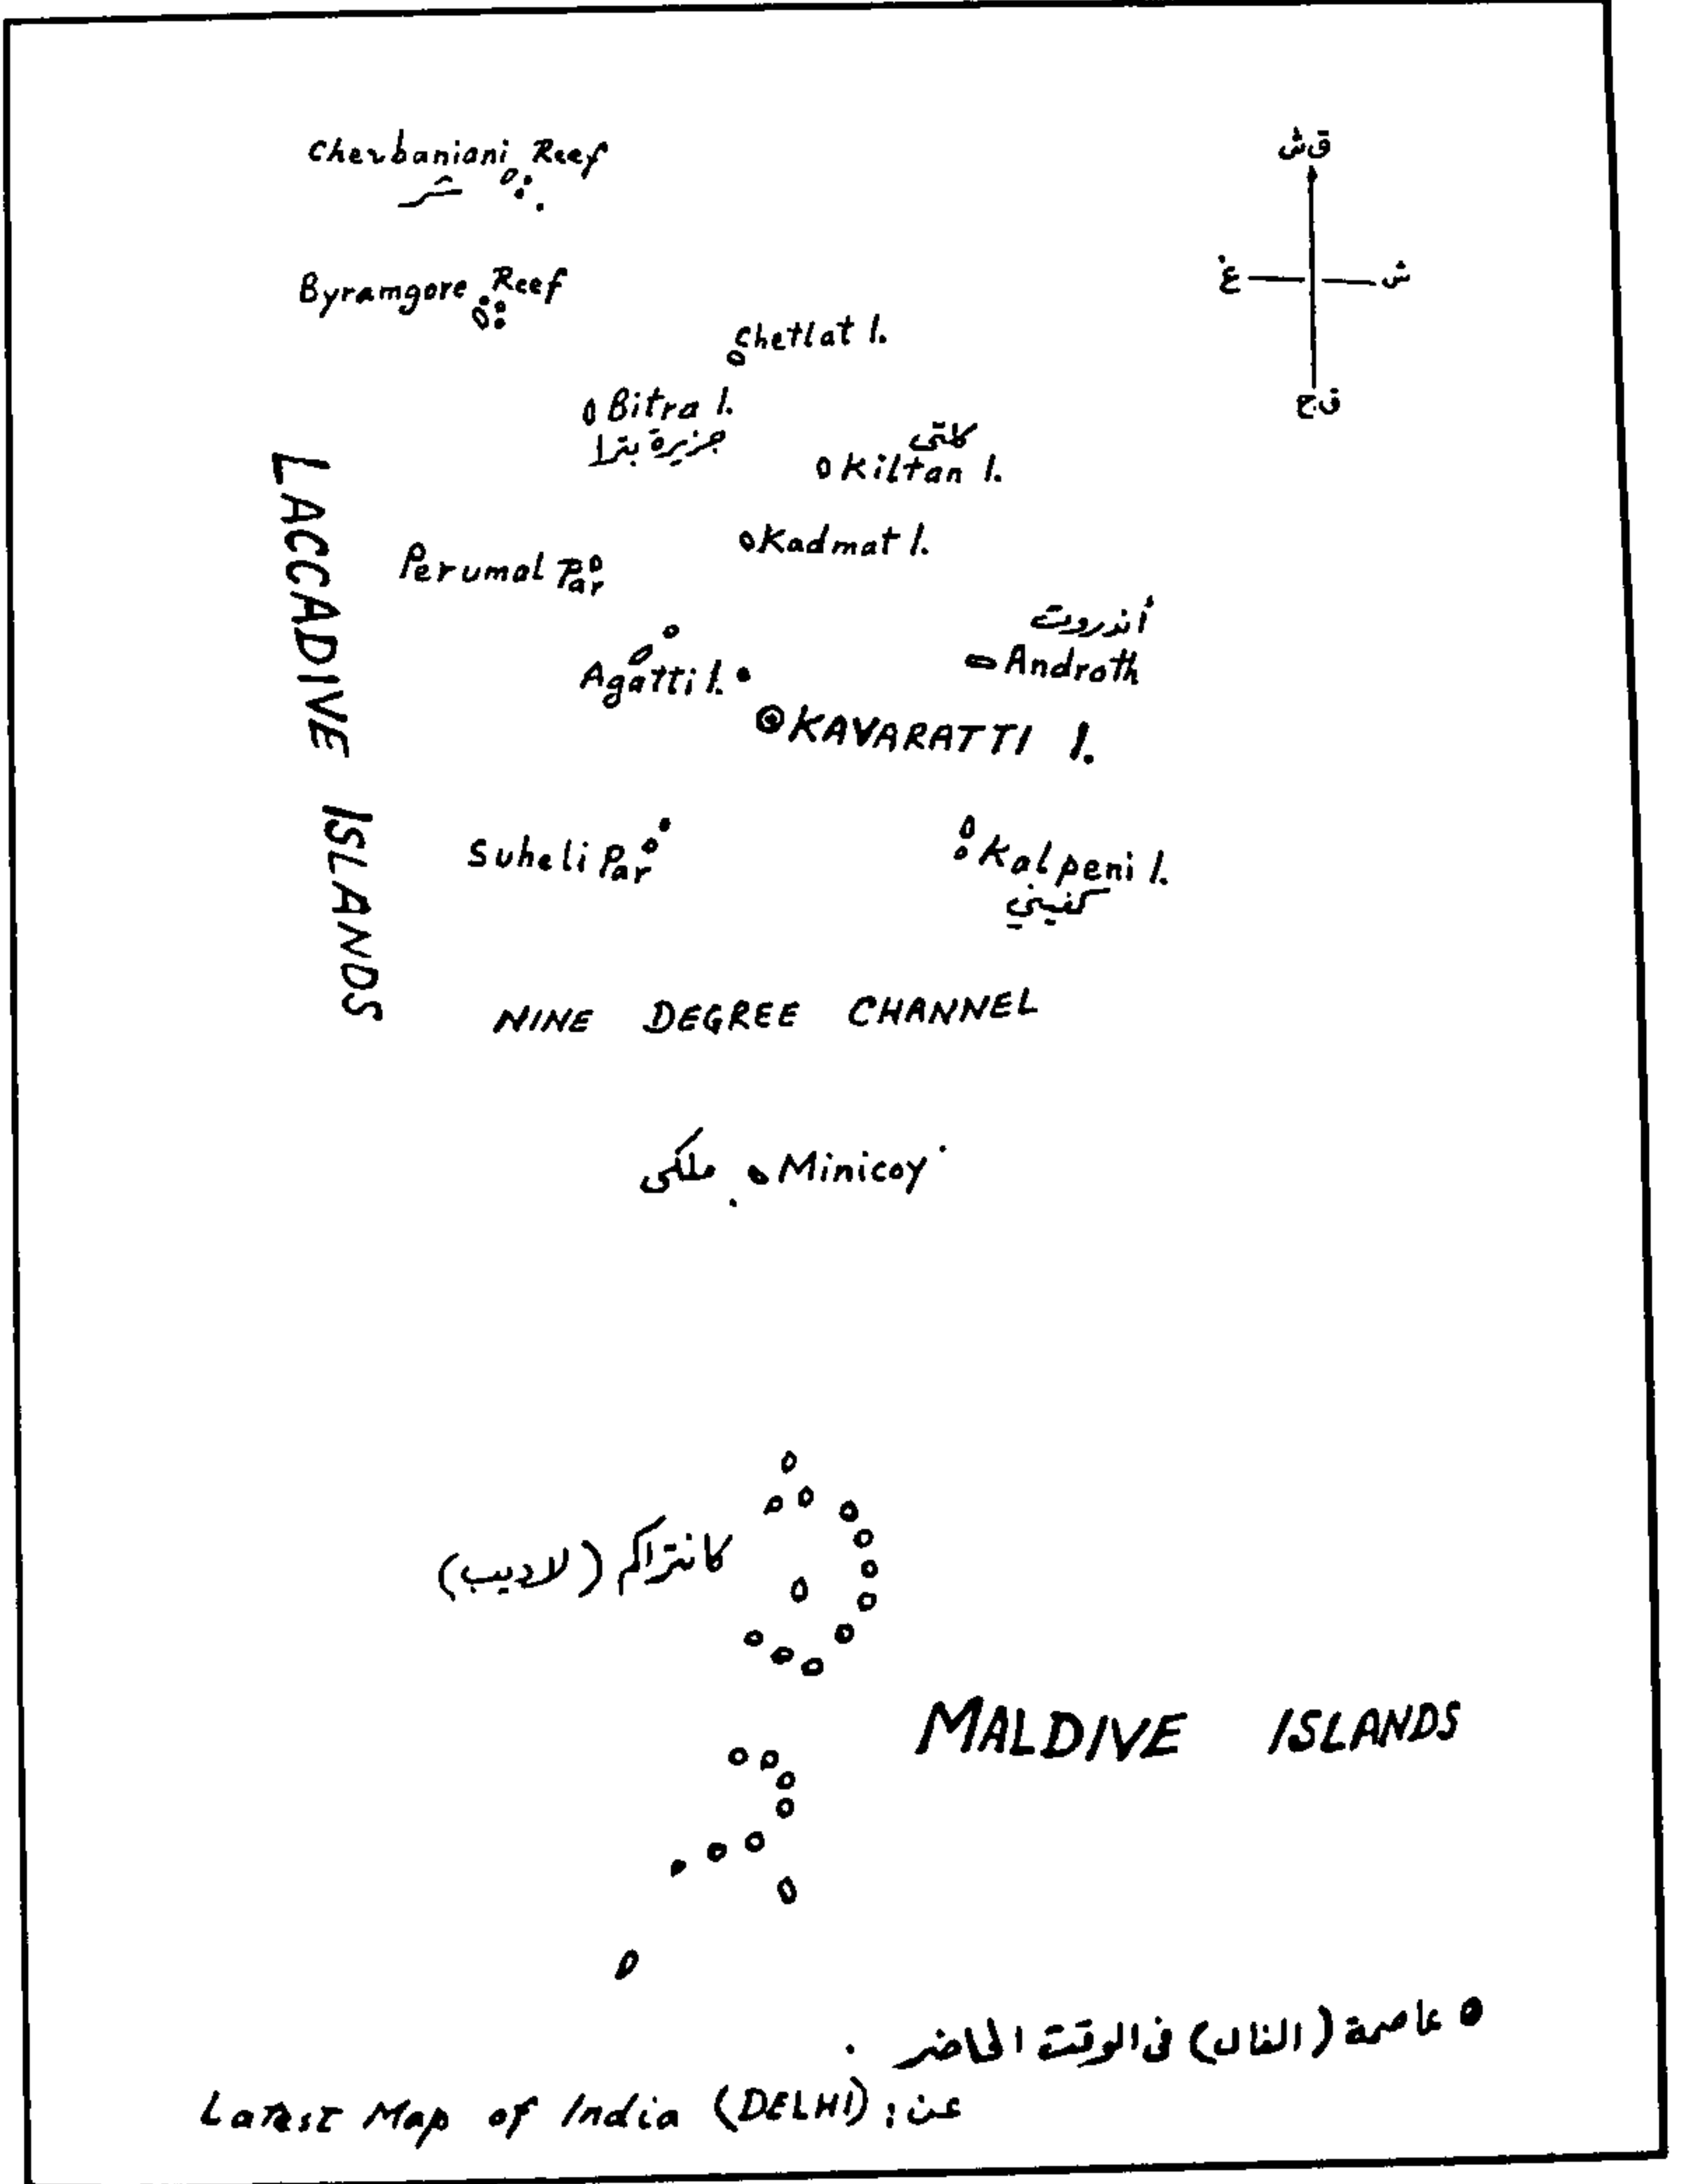 Cherbaniani Reef
شر
قش
Byramgore Reef
غ
ش
Chetlat I.
قج
Bitra I.
جزيرة بترا
كلتى
Kiltan I.
LACCADIVE ISLANDS
Kadmat I.
Perumal Par
أندروت
Androth
Agatti I.
KAVARATTI I.
Suheli Par
Kalpeni I.
كفيني
NINE DEGREE CHANNEL
ملكى
Minicoy
كانتراكم (لاديب)
MALDIVE ISLANDS
عاصمة (الفال) فى الوقت الحاضر .
عن: Latest Map of India (DELHI)